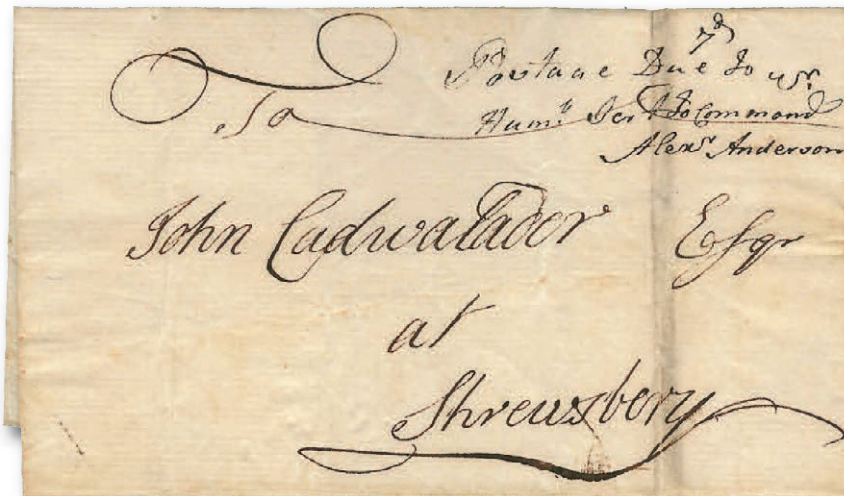 7d
Postage Due to yr.
Humb Sert to Command
Alexr. Anderson
To
John Cadwalador Esqr
at
Shrewsbery